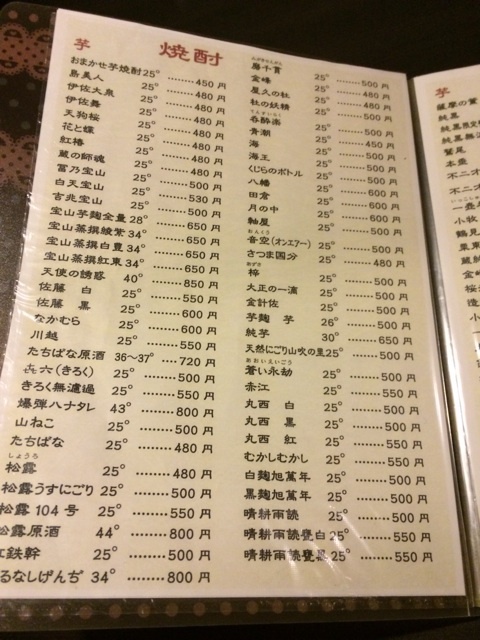 芋 焼酎
おまかせ芋焼酎 25° ……… 450円
島美人 25° ……… 480円
伊佐大泉 25° ……… 480円
伊佐舞 25° ……… 480円
天狗桜 25° ……… 480円
花と蝶 25° ……… 480円
紅椿 25° ……… 480円
蔵の師魂 25° ……… 480円
冨乃宝山 25° ……… 500円
白天宝山 25° ……… 530円
吉兆宝山 25° ……… 500円
宝山芋麹全量 28° ……… 650円
宝山蒸撰綾紫 34° ……… 650円
宝山蒸撰白豊 34° ……… 650円
宝山蒸撰紅東 34° ……… 650円
天使の誘惑 40° ……… 850円
佐藤 白 25° ……… 550円
佐藤 黒 25° ……… 600円
なかむら 25° ……… 600円
川越 25° ……… 550円
たちばな原酒 36~37° … 720円
㐂六(きろく) 25° ……… 500円
きろく無濾過 25° ……… 550円
爆弾ハナタレ 43° ……… 800円
山ねこ 25° ……… 500円
たちばな 25° ……… 480円
しょうろ
松露 25° ……… 480円
松露うすにごり 25° ……… 500円
松露 104号 25° ……… 500円
松露原酒 44° ……… 800円
鉄幹 25° ……… 500円
るなしげんぢ 34° ……… 800円
万貫 25° ……… 500円
金峰 25° ……… 480円
屋久の杜 25° ……… 480円
杜の妖精 25° ……… 480円
呑酔楽 25° ……… 500円
青潮 25° ……… 450円
海 25° ……… 500円
海王 25° ……… 500円
くじらのボトル 25° ……… 500円
八幡 25° ……… 600円
田倉 25° ……… 600円
月の中 25° ……… 600円
軸屋 25° ……… 500円
おんくう
音空(オンエアー) 25° ……… 500円
さつま国分 25° ……… 480円
あずさ
梓 25° ……… 500円
大正の一滴 25° ……… 500円
金計佐 25° ……… 500円
芋麹 芋 26° ……… 500円
純芋 30° ……… 650円
天然にごり山吹の里 25° ……… 500円
あおいえいごう
蒼い永劫 25° ……… 500円
赤江 25° ……… 550円
丸西 白 25° ……… 500円
丸西 黒 25° ……… 500円
丸西 紅 25° ……… 550円
むかしむかし 25° ……… 550円
白麹旭萬年 25° ……… 500円
黒麹旭萬年 25° ……… 500円
晴耕雨読 25° ……… 500円
晴耕雨読甕白 25° ……… 550円
晴耕雨読甕黒 25° ……… 550円
芋
薩摩の
純黒
純黒
純黒無
鷲尾
本垂
不二才
不二才
一壺
小牧
鶴見
金峰